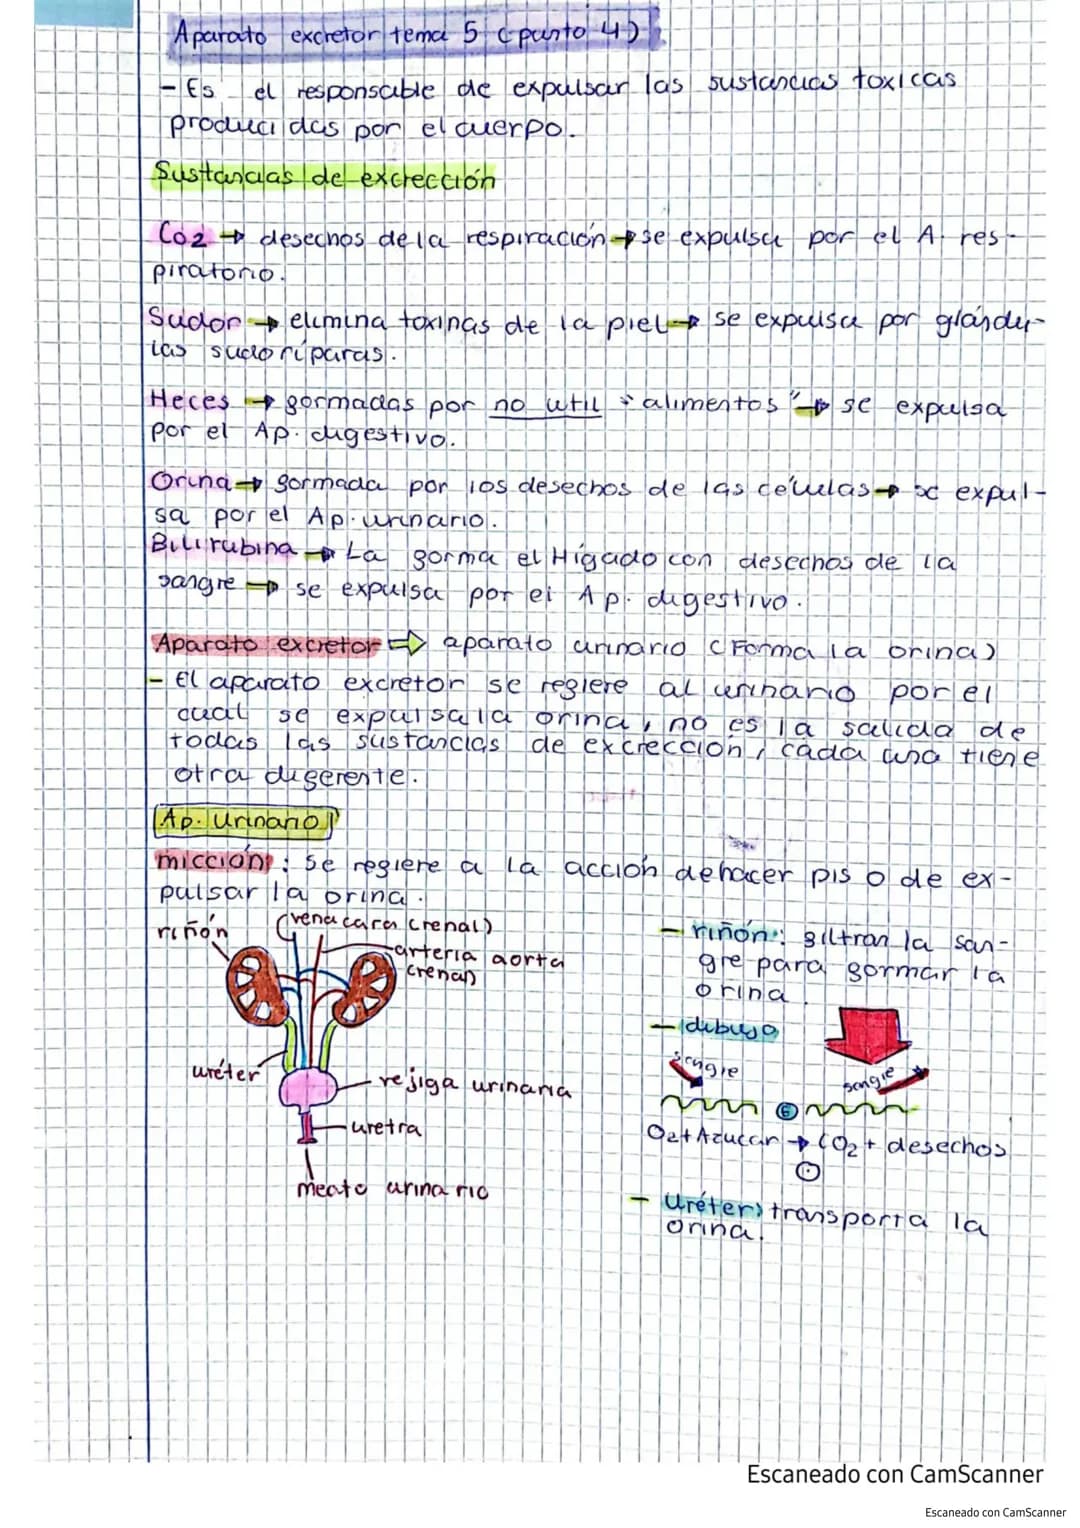 Aparato excretor tema 5 (punto 4)
- Es el responsable de expulsar las sustancias toxicas
producidas por el cuerpo.
Sustancias de excrección
Co2 → desechos de la respiración → se expulsa por el A. res-
piratorio.
Sudor → elimina toxinas de la piel → se expulsa por glándu-
las sudoríparas.
Heces → formadas por no util "alimentos" → se expulsa
por el Ap. digestivo.
Orina → formada por los desechos de las células → se expul-
sa por el Ap. urinario.
Bilirubina → La forma el Hígado con desechos de la
sangre → se expulsa por el Ap. digestivo.
Aparato excretor ⇒ aparato urinario (Forma la orina)
- El aparato excretor se refiere al urinario por el
cual se expulsa la orina, no es la salida de
todas las sustancias de excreccion, cada una tiene
otra diferente.
Ap. Urinario
micción: se refiere a la acción de hacer pis o de ex-
pulsar la orina.
riñón
(vena cara (renal)
arteria aorta
(renal)
uréter
rejiga urinaria
uretra
meato urinario
- riñón: filtran la san-
gre para formar la
orina.
- dibujo
sangre
sangre
O2+Azucar → CO2+ desechos
- Uréter: transporta la
orina.
Escaneado con CamScanner
Escaneado con CamScanner